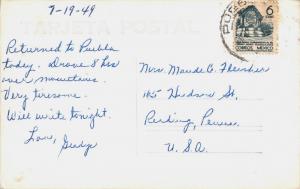 7-19-49
TARJETA POSTAL
Returned to Puebla
today. Drove 8 hrs
over mountains.
Very tiresome.
Will write tonight.
Love,
Mrs. Maude G.
145 Hudson St.
Reading, Penna.
U.S.A.
6
CORREOS MEXICO
PUEB